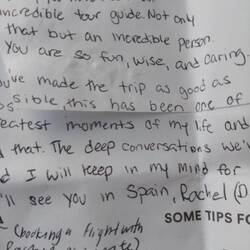 incredible tour guide. Not only
that but an incredible person.
You are so fun, wise, and caring.
've made the trip as good as
sible, this has been one of
eatest moments of my life and
that. The deep conversations we'
d I will keep in my mind for
'll see you in Spain, Rachel (D
SOME TIPS F
a flight with